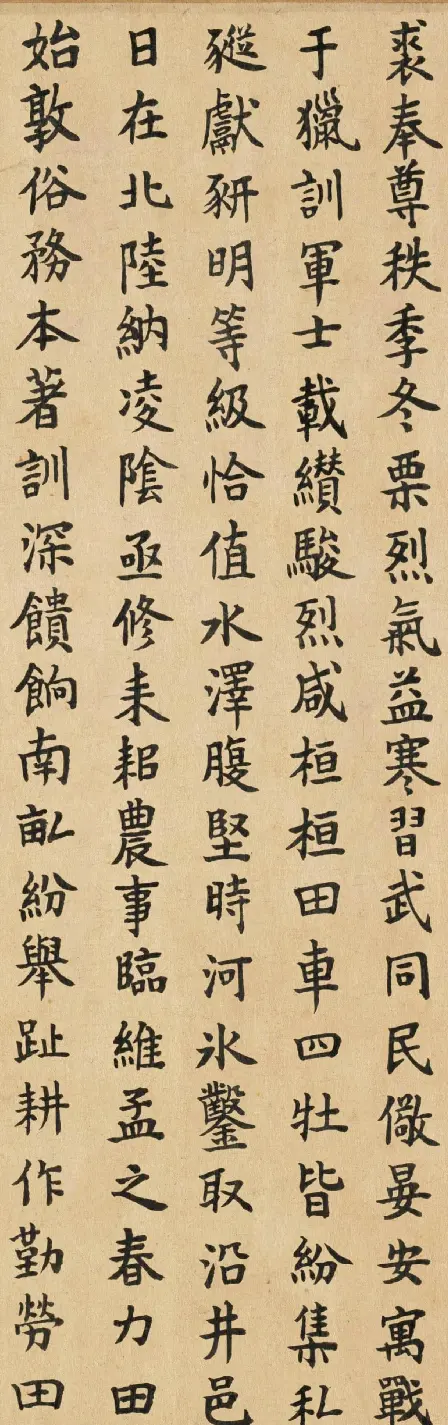 裘奉尊秩季冬栗烈氣益寒習武同民儆晏安寓戰
于獵訓軍士載纘駿烈咸桓桓田車四牡皆紛集私
豵獻豜明等級恰值水澤腹堅時河氷鑿取沿井邑
日在北陸納凌陰亟修耒耜農事臨維孟之春力田
始敦俗務本著訓深饋餉南畝紛舉趾耕作勤勞田